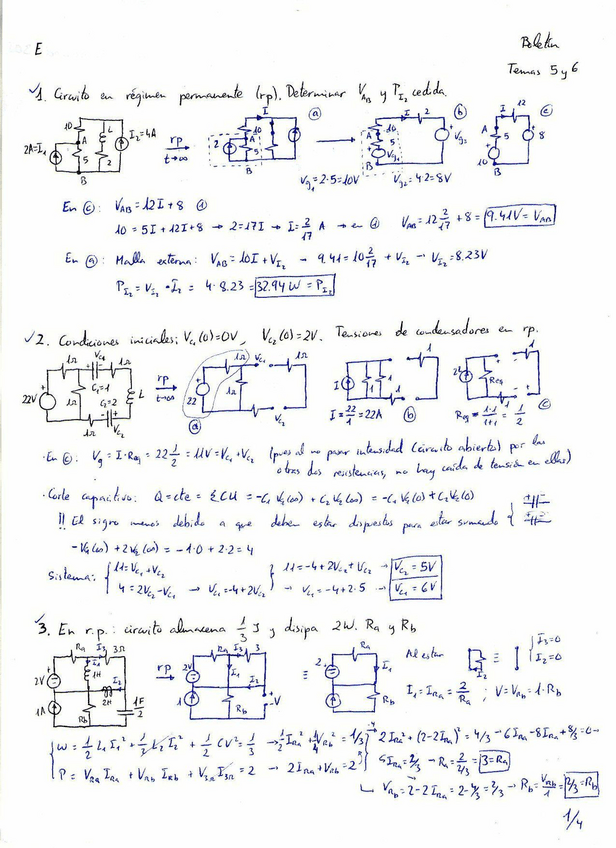 E
Boletín
Temas 5 y 6
✓1. Circuito en régimen permanente (rp). Determinar V_AB y P_I2 cedida.
2A=I₁ 10 A 5 B L 2 I₂=4A
rp t→∞
2 10 A 5 B I ⓐ
I 2 10 A 5 Vg₁ B Vg₂ ⓑ
I 12 A 5 10 B 8 ⓒ
Vg₁=2·5=10V Vg₂=4·2=8V
En ⓒ: V_AB = 12I+8 ①
10 = 5I+12I+8 → 2=17I → I=2/17 A → en ① V_AB=12 2/17 +8 = 9.41V = V_AB
En ⓐ: Malla externa: V_AB=10I+V_I2 → 9.41=10 2/17 + V_I2 → V_I2=8.23V
P_I2 = V_I2 · I₂ = 4·8.23= 32.94 W = P_I2
✓2. Condiciones iniciales: V_C1(0)=0V, V_C2(0)=2V. Tensiones de condensadores en rp.
22V 1Ω V_C1 1Ω C₁=1 1Ω C₂=2 L 1Ω V_C2
rp t→∞
22 1Ω V_C1 1Ω V_C2 ⓐ
I 1 1 1 1 I=22/1=22A ⓑ
Req 1 1 Req=1·1/1+1=1/2 ⓒ
· En ⓒ: Vg = I·Req = 22 1/2 = 11V = V_C1+V_C2 (pues al no pasar intensidad (circuito abierto) por las
otras dos resistencias, no hay caída de tensión en ellas)
· Corte capacitivo: Q=cte = ΣCU = -C₁ V₁(∞) + C₂ V₂(∞) = -C₁ V₁(0) + C₂V₂(0)
!! El signo menos debido a que deben estar dispuestos para estar sumando
-V₁(∞) + 2V₂(∞) = -1·0 + 2·2 = 4
Sistema: { 11=V_C1+V_C2 } 11=-4+2V_C2+V_C2 → V_C2=5V
4=2V_C2-V_C1 → V_C1=-4+2V_C2 → V_C1=-4+2·5 → V_C1=6V
✓3. En r.p.: circuito almacena 1/3 J y disipa 2W. Ra y Rb
2V Ra I₁ 1H I₃ 3Ω 1A Rb 2H I₂ 1F/2
rp t→∞
2V Ra I₃ 3 I₁ I₂ Rb V
≡ 2 Ra I₁ Rb
Al estar I₂ ≡ { I₃=0 I₂=0
I₁=I_Ra=2/Ra ; V=V_Rb=1·Rb
W = 1/2 L₁I₁² + 1/2 L₂I₂² + 1/2 CV² = 1/3 → 1/2 I_Ra² + 1/4 V_Rb² = 1/3 2I_Ra²+(2-2I_Ra)²=4/3 → 6I_Ra-8I_Ra+8/3=0→
P = V_Ra I_Ra + V_Rb I_Rb + V_3Ω I_3Ω = 2 → 2I_Ra+V_Rb=2 I_Ra=2/3 → Ra=2/2/3= 3=Ra
V_Rb=2-2I_Ra=2-4/3=2/3 → Rb=V_Rb/1= 2/3=Rb
1/4